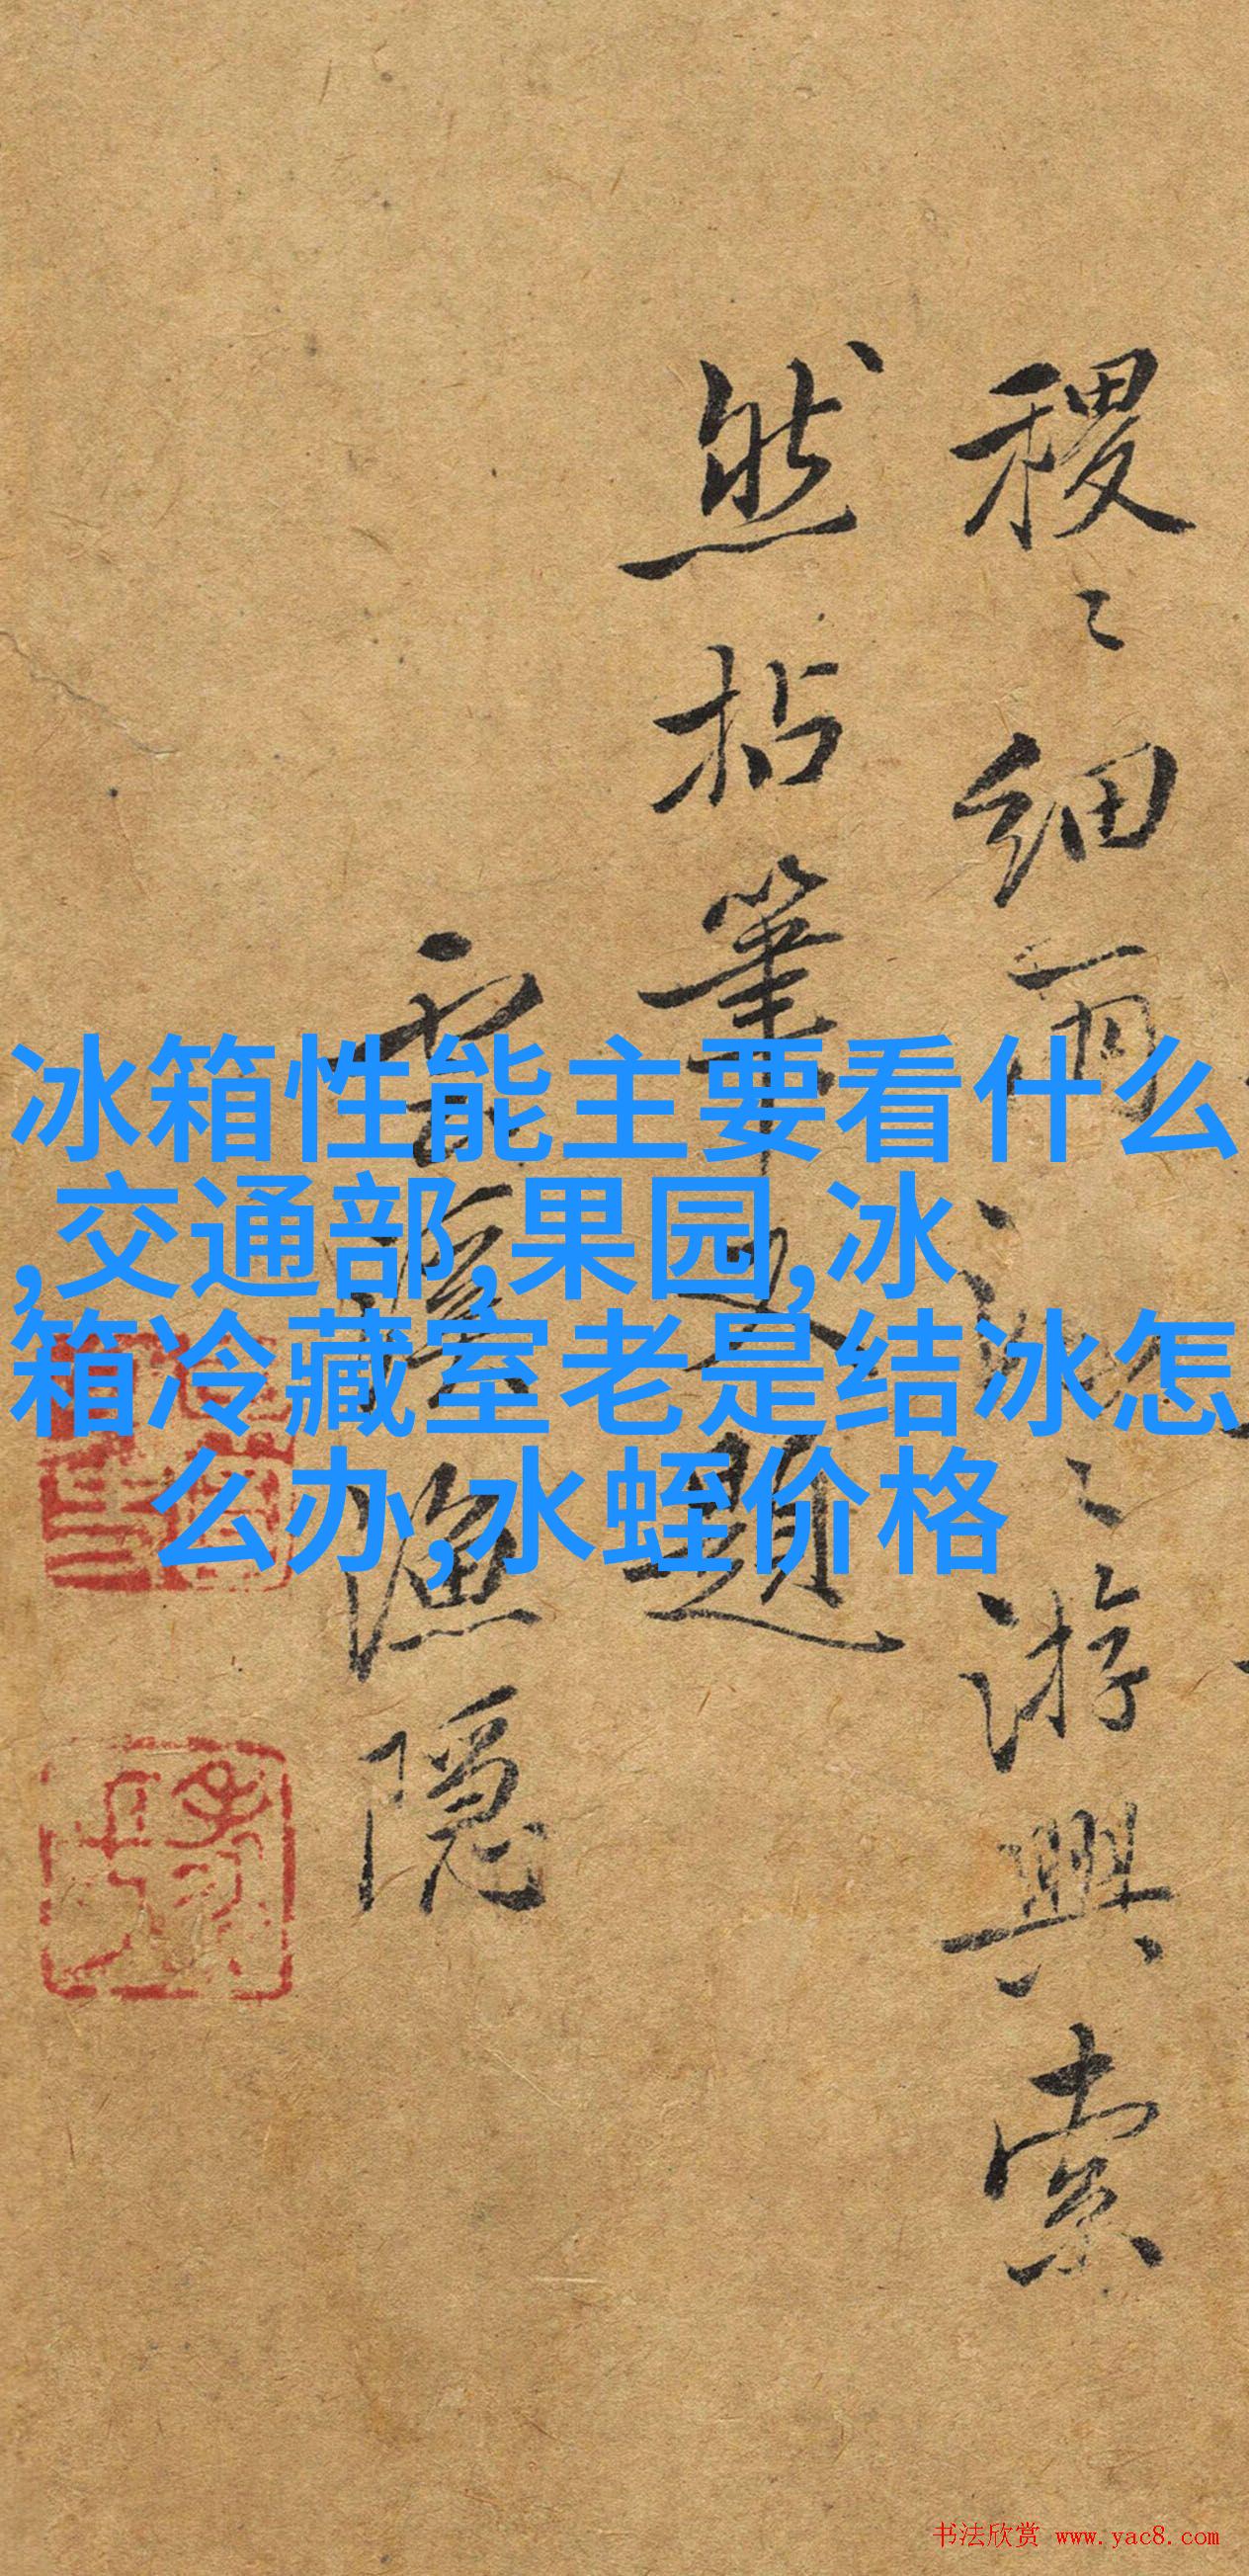 稷〻细雨
〻游興索
然拈筆
題
漁隱
冰箱性能主要看什么
,交通部,果园,冰
箱冷藏室老是结冰怎
么办,水蛭价格
书法欣赏 www.yac8.com